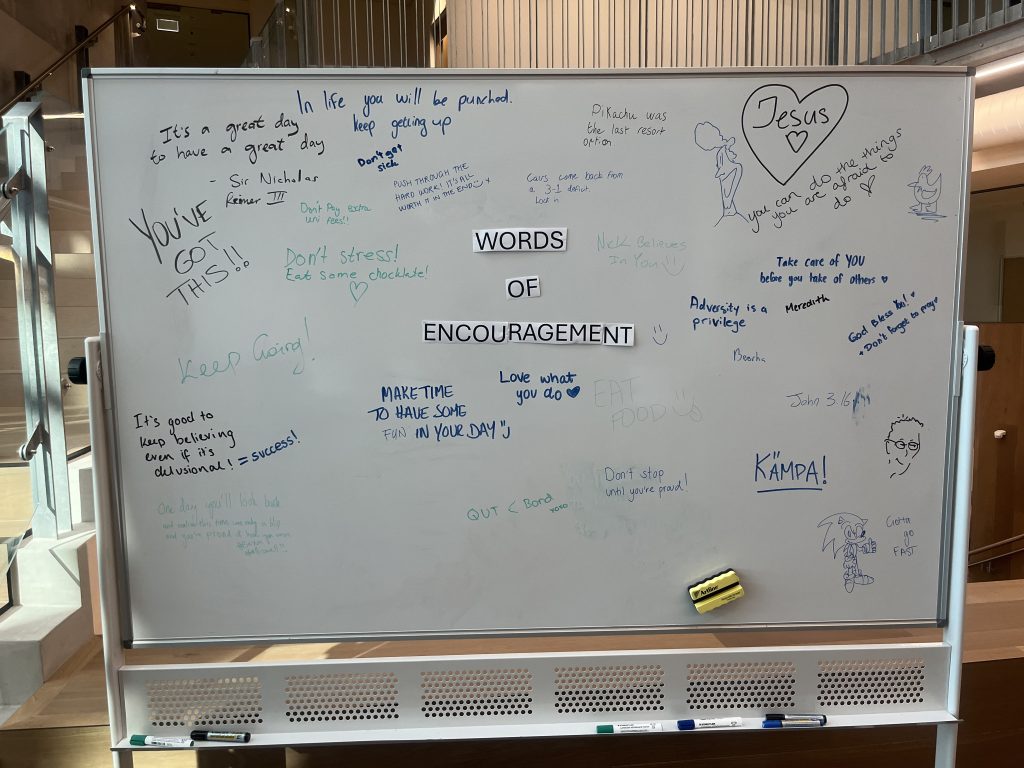 In life you will be punched.
keep getting up
It's a great day
to have a great day
- Sir Nicholas
Reimer III
Don't get
sick
PUSH THROUGH THE
HARD WORK! IT'S ALL
WORTH IT IN THE END
Pikachu was
the last resort
option
Cavs come back from
a 3-1 deficit.
Lock in
Jesus
you can do the things
you are afraid to
do
YOU'VE
GOT
THIS!!
Don't Pay extra
uni fees!!
Don't stress!
Eat some chocklate!
WORDS
OF
ENCOURAGEMENT
Nick Believes
In You
Take care of YOU
before you take of others
Adversity is a
privilege
Meredith
God Bless You!
+ Don't forget to pray
Keep Going!
MAKE TIME
TO HAVE SOME
FUN IN YOUR DAY
Love what
you do
EAT
FOOD
John 3:16
It's good to
keep believing
even if it's
delusional! = success!
One day you'll look back
QUT < Bond
xoxo
Don't stop
until you're proud!
KÄMPA!
Gotta
go
FAST
Artline